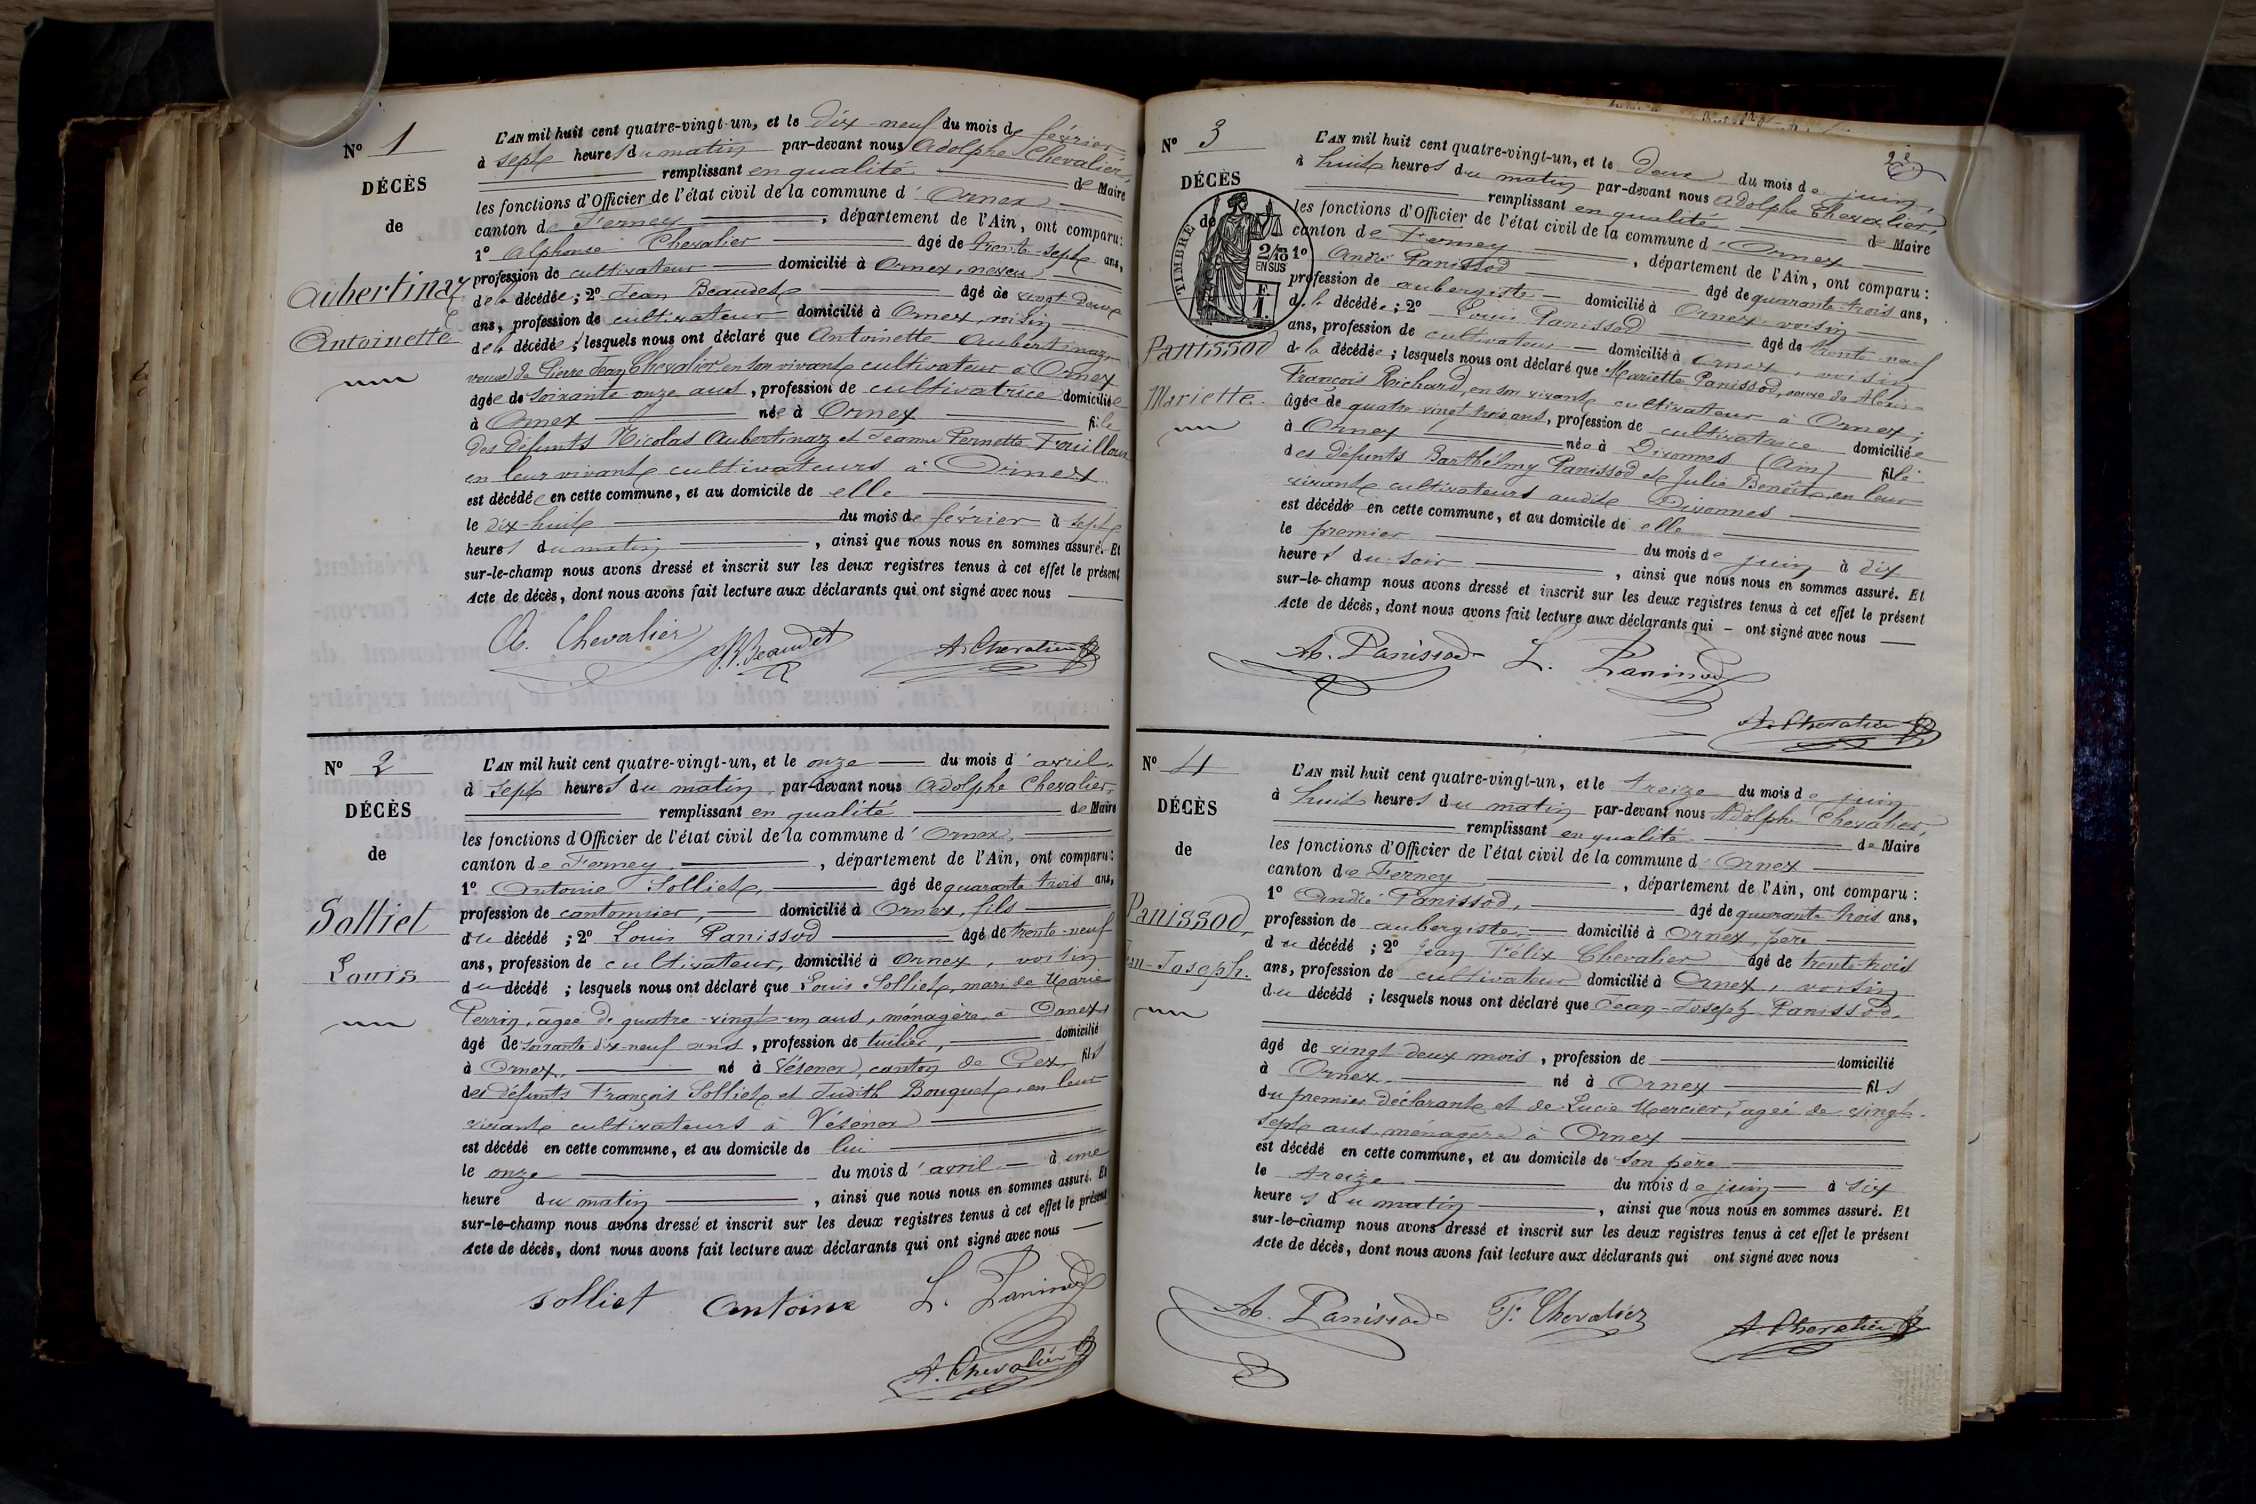 N° 1
DÉCÈS
de
Aubertinaz
Antoinette
L'AN mil huit cent quatre-vingt-un, et le dix-neuf du mois de février
à sept heures du matin par-devant nous Adolphe Chevalier,
remplissant en qualité de Maire
les fonctions d'Officier de l'état civil de la commune d'Ornex
canton de Ferney, département de l'Ain, ont comparu:
1° Alphonse Chevalier âgé de trente-sept ans,
profession de cultivateur domicilié à Ornex, neveu
de la décédée; 2° Jean Beaudet âgé de vingt deux
ans, profession de cultivateur domicilié à Ornex, voisin
de la décédée; lesquels nous ont déclaré que Antoinette Aubertinaz
veuve de Pierre Jean Chevalier en son vivant cultivateur à Ornex
âgée de soixante onze ans, profession de cultivatrice domiciliée
à Ornex née à Ornex fille
des défunts Nicolas Aubertinaz et Jeanne Pernette Fouilloux
en leur vivant cultivateurs à Ornex
est décédée en cette commune, et au domicile de elle
le dix-huit du mois de février à sept
heures du matin, ainsi que nous nous en sommes assuré. Et
sur-le-champ nous avons dressé et inscrit sur les deux registres tenus à cet effet le présent
Acte de décès, dont nous avons fait lecture aux déclarants qui ont signé avec nous
A. Chevalier Beaudet A. Chevalier
N° 2
DÉCÈS
de
Solliet
Louis
L'AN mil huit cent quatre-vingt-un, et le onze du mois d'avril
à sept heures du matin par-devant nous Adolphe Chevalier,
remplissant en qualité de Maire
les fonctions d'Officier de l'état civil de la commune d'Ornex,
canton de Ferney, département de l'Ain, ont comparu:
1° Antoine Solliet, âgé de quarante trois ans,
profession de cantonnier, domicilié à Ornex, fils
du décédé; 2° Louis Panissod âgé de trente-neuf
ans, profession de cultivateur, domicilié à Ornex, voisin
du décédé; lesquels nous ont déclaré que Louis Solliet, mari de Marie
Perrin, âgée de quatre-vingt-un ans, ménagère à Ornex,
âgé de soixante dix-neuf ans, profession de tuilier, domicilié
à Ornex, né à Vésenex, canton de Gex, fils
des défunts François Solliet et Judith Bouquet, en leur
vivant cultivateurs à Vésenex
est décédé en cette commune, et au domicile de lui
le onze du mois d'avril à une
heure du matin, ainsi que nous nous en sommes assuré. Et
sur-le-champ nous avons dressé et inscrit sur les deux registres tenus à cet effet le présent
Acte de décès, dont nous avons fait lecture aux déclarants qui ont signé avec nous
Solliet Antoine L. Panissod
A. Chevalier
N° 3
DÉCÈS
de
TIMBRE
2/10
EN SUS
F.
1.
Panissod
Mariette
L'AN mil huit cent quatre-vingt-un, et le deux du mois de juin,
à huit heures du matin par-devant nous Adolphe Chevalier,
remplissant en qualité de Maire
les fonctions d'Officier de l'état civil de la commune d'Ornex
canton de Ferney, département de l'Ain, ont comparu:
1° André Panissod âgé de quarante-trois ans,
profession de aubergiste domicilié à Ornex voisin
de la décédée; 2° Louis Panissod âgé de trente-neuf
ans, profession de cultivateur domicilié à Ornex, voisin
de la décédée; lesquels nous ont déclaré que Mariette Panissod, veuve de Alexis
François Richard, en son vivant cultivateur à Ornex,
âgée de quatre-vingt trois ans, profession de cultivatrice domiciliée
à Ornex née à Divonnes (Ain) fille
des défunts Barthélmy Panissod et Julie Benoîte, en leur
vivant cultivateurs audit Divonnes
est décédée en cette commune, et au domicile de elle
le premier du mois de juin à dix
heures du soir, ainsi que nous nous en sommes assuré. Et
sur-le-champ nous avons dressé et inscrit sur les deux registres tenus à cet effet le présent
Acte de décès, dont nous avons fait lecture aux déclarants qui - ont signé avec nous
A. Panissod L. Panissod
A. Chevalier
N° 4
DÉCÈS
de
Panissod,
Jean-Joseph.
L'AN mil huit cent quatre-vingt-un, et le treize du mois de juin
à huit heures du matin par-devant nous Adolphe Chevalier,
remplissant en qualité de Maire
les fonctions d'Officier de l'état civil de la commune d'Ornex
canton de Ferney, département de l'Ain, ont comparu:
1° André Panissod, âgé de quarante trois ans,
profession de aubergiste, domicilié à Ornex, père
du décédé; 2° Jean Félix Chevalier âgé de trente-trois
ans, profession de cultivateur domicilié à Ornex, voisin
du décédé; lesquels nous ont déclaré que Jean-Joseph Panissod,
âgé de vingt-deux mois, profession de domicilié
à Ornex, né à Ornex fils
du premier déclarant et de Lucie Mercier, âgée de vingt-
sept ans, ménagère à Ornex
est décédé en cette commune, et au domicile de son père
le treize du mois de juin à six
heures du matin, ainsi que nous nous en sommes assuré. Et
sur-le-champ nous avons dressé et inscrit sur les deux registres tenus à cet effet le présent
Acte de décès, dont nous avons fait lecture aux déclarants qui ont signé avec nous
A. Panissod F. Chevalier A. Chevalier